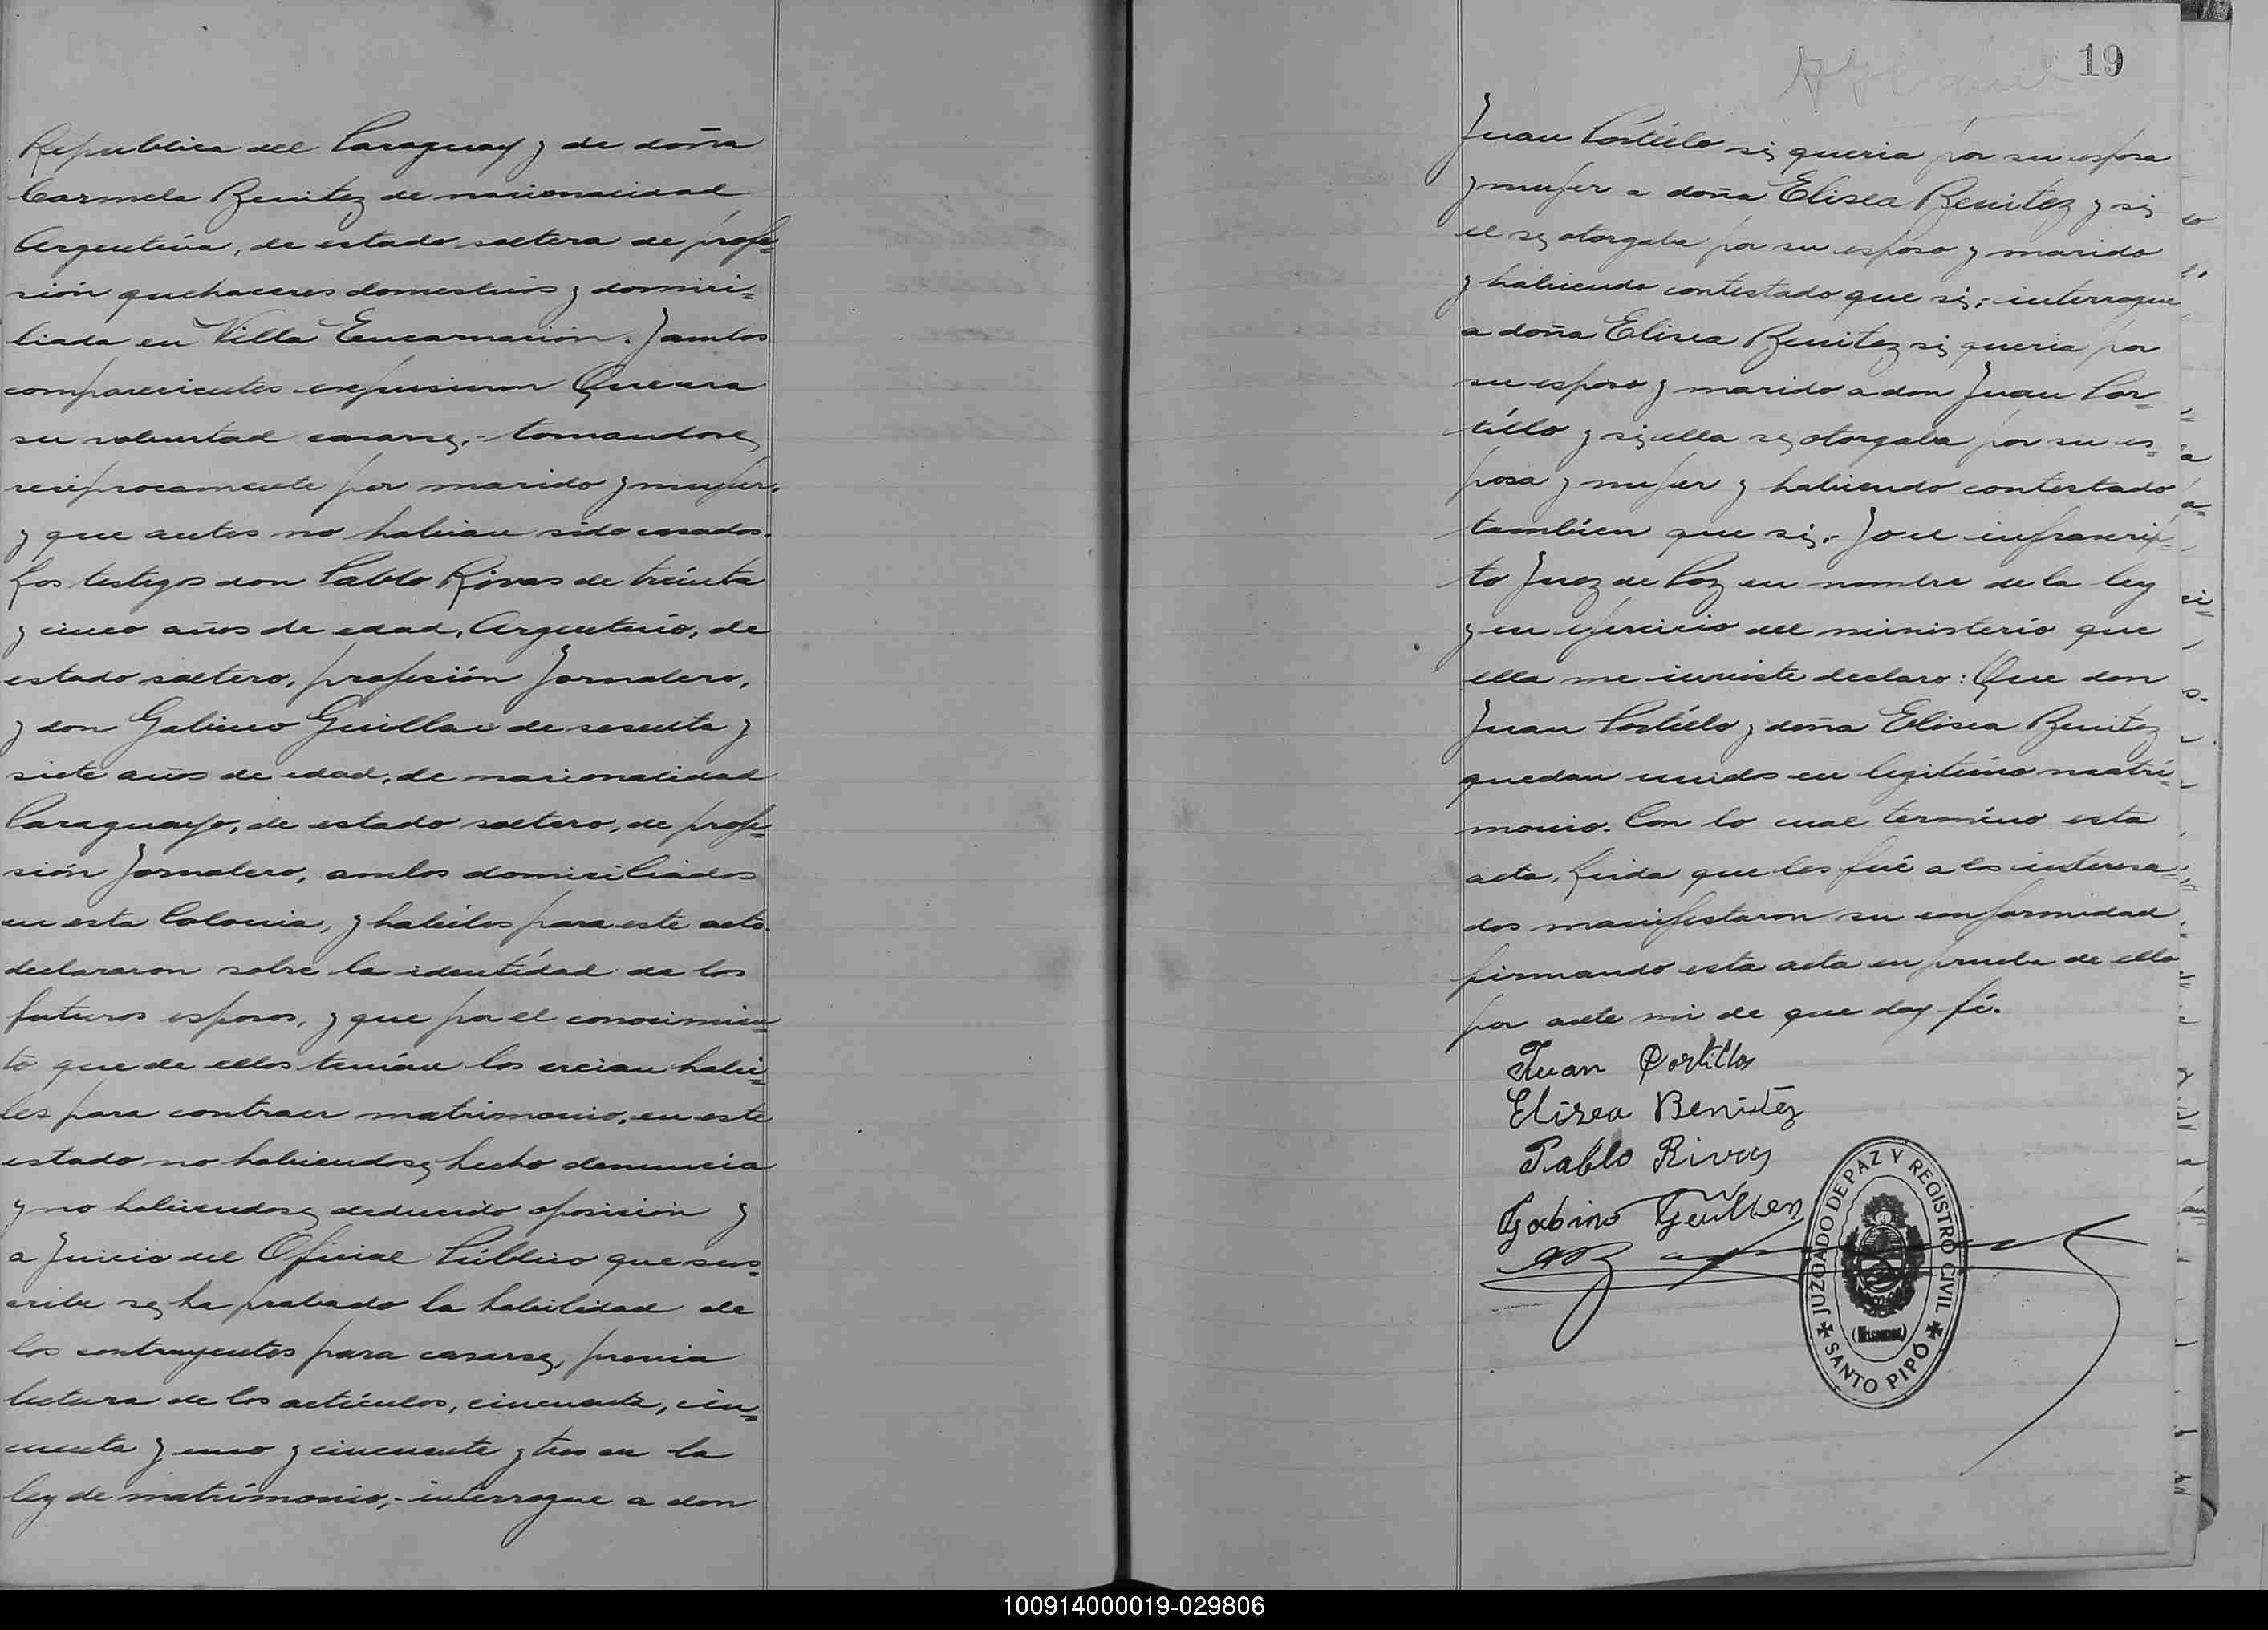 Republica del Paraguay y de doña
Carmela Benitez de nacionalidad
Argentina, de estado soltera de profe=
sión quehaceres domesticos y domici=
liada en Villa Encarnación. Y ambos
comparecientes expusieron Que era
su voluntad casarse,- tomandose
reciprocamente por marido y mujer,
y que antes no habian sido casados.
Los testigos don Pablo Rivas de treinta
y cinco años de edad, Argentino, de
estado soltero, profesión Jornalero,
y don Gabino Guillen de sesenta y
siete años de edad, de nacionalidad
Paraguayo, de estado soltero, de profe=
sión Jornalero, ambos domiciliados
en esta Colonia, y habiles para este acto.
declararon sobre la identidad de los
futuros esposos, y que por el conocimien=
to que de ellos tenían los creian habi=
les para contraer matrimonio, en este
estado no habiendose hecho denuncia
y no habiendose deducido oposición y
a Juicio del Oficial Público que sus=
cribe se ha probado la habilidad de
los contrayentes para casarse, previa
lectura de los artículos, cincuenta, cin=
cuenta y uno y cincuenta y tres en la
ley de matrimonio,- interrogue a don
19
Juan Portillo si queria por su esposa
y mujer a doña Elisea Benitez y si
el se otorgaba por su esposo y marido
y habiendo contestado que si,- interrogue
a doña Elisea Benitez si queria por
su esposo y marido a don Juan Por=
tillo y si ella se otorgaba por su es=
posa y mujer y habiendo contestado
también que si.- Yo el infrascrip=
to Juez de Paz en nombre de la ley
y en ejercicio del ministerio que
ella me inviste declaro: Que don
Juan Portillo y doña Elisea Benitez
quedan unidos en legitimo matri=
monio. Con lo cual termino esta
acta, Leida que les fué a los interesa=
dos manifestaron su conformidad
firmando esta acta en prueba de ello
por ante mi de que doy fé.
Juan Portillo
Elisea Benitez
Pablo Rivas
Gabino Guillen
JUZGADO DE PAZ Y REGISTRO CIVIL
(MISIONES)
SANTO PIPÓ
100914000019-029806